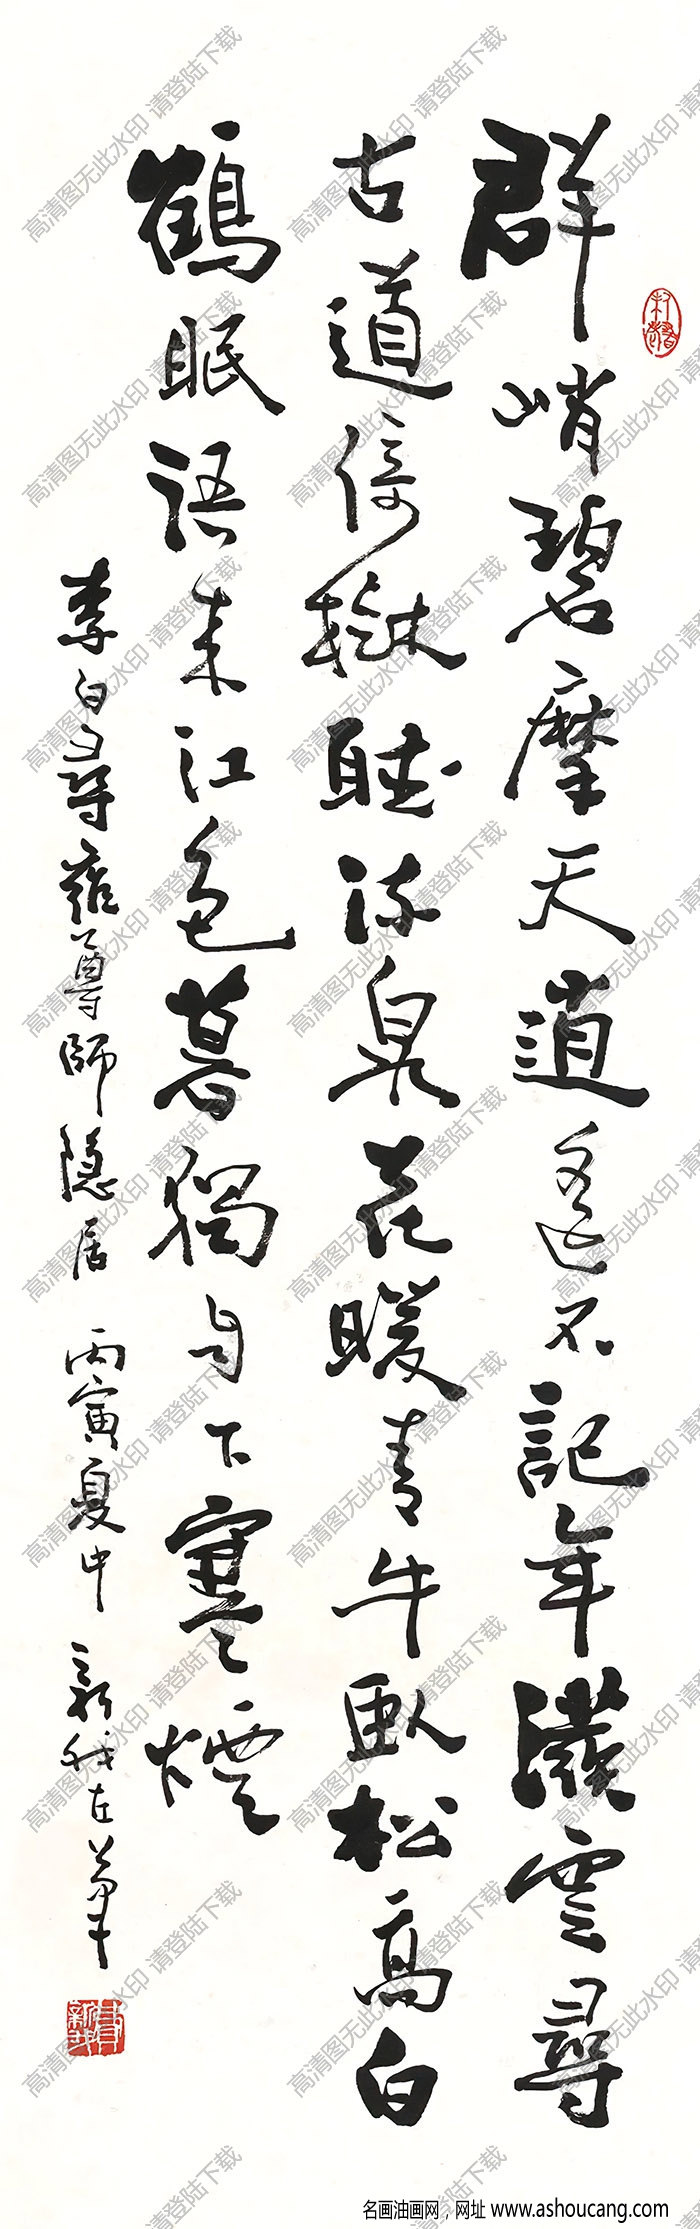 群峭碧摩天逍遥不記年撥雲尋
古道倚樹聽流泉花暖青牛臥松高白
鶴眠語来江色暮獨自下寒煙
李白尋雍尊師隱居 丙寅夏中 新我左筆
高清图无此水印 请登陆下载
名画油画网，网址 www.ashoucang.com